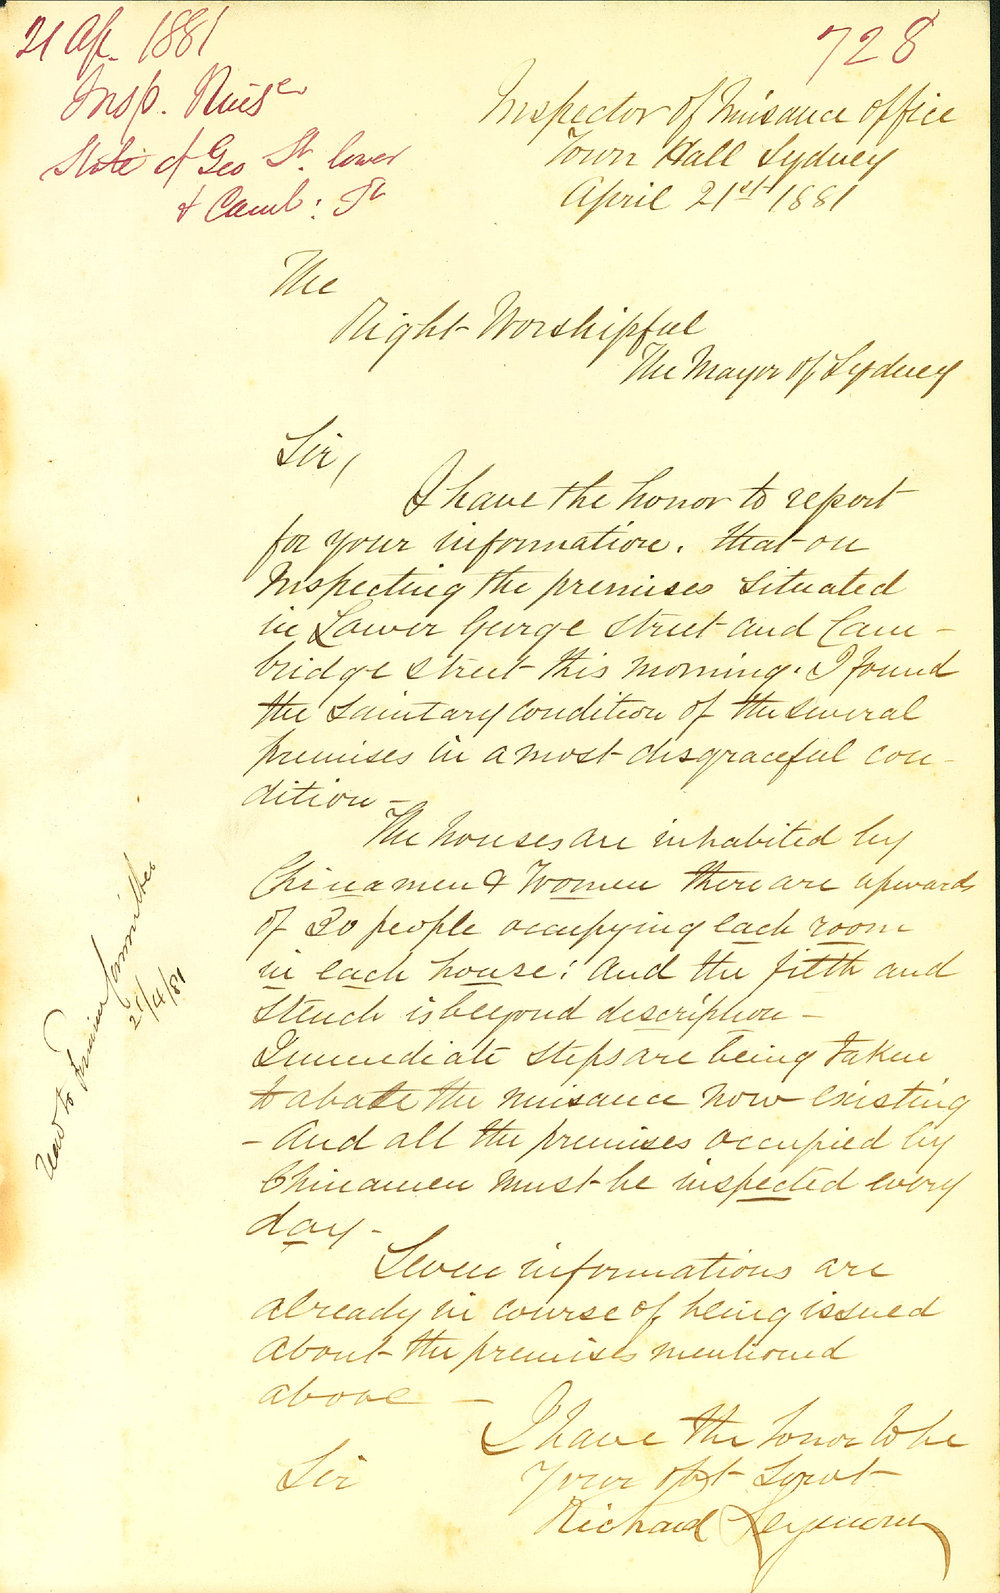 21 Ap. 1881
728
Insp. Nuisce
State of Geo St. lower
& Camb: St
Inspector of Nuisance office
Town Hall Sydney
April 21st 1881
The
Right Worshipful
The Mayor of Sydney
Sir,
I have the honor to report
for your information. that on
Inspecting the premises situated
in Lower George street and Cam-
bridge street this morning. I found
the sanitary condition of the several
premises in a most disgraceful con-
dition -
The houses are inhabited by
Chinamen & Women there are upwards
of 30 people occupying each room
in each house; and the filth and
stench is beyond description -
Immediate steps are being taken
to abate the nuisance now existing
- And all the premises occupied by
Chinamen must be inspected every
day -
Seven informations are
already in course of being issued
about the premises mentioned
above -
I have the honor to be
Sir
Your obt Servt
Richard Seymour
to Committee
25/4/81